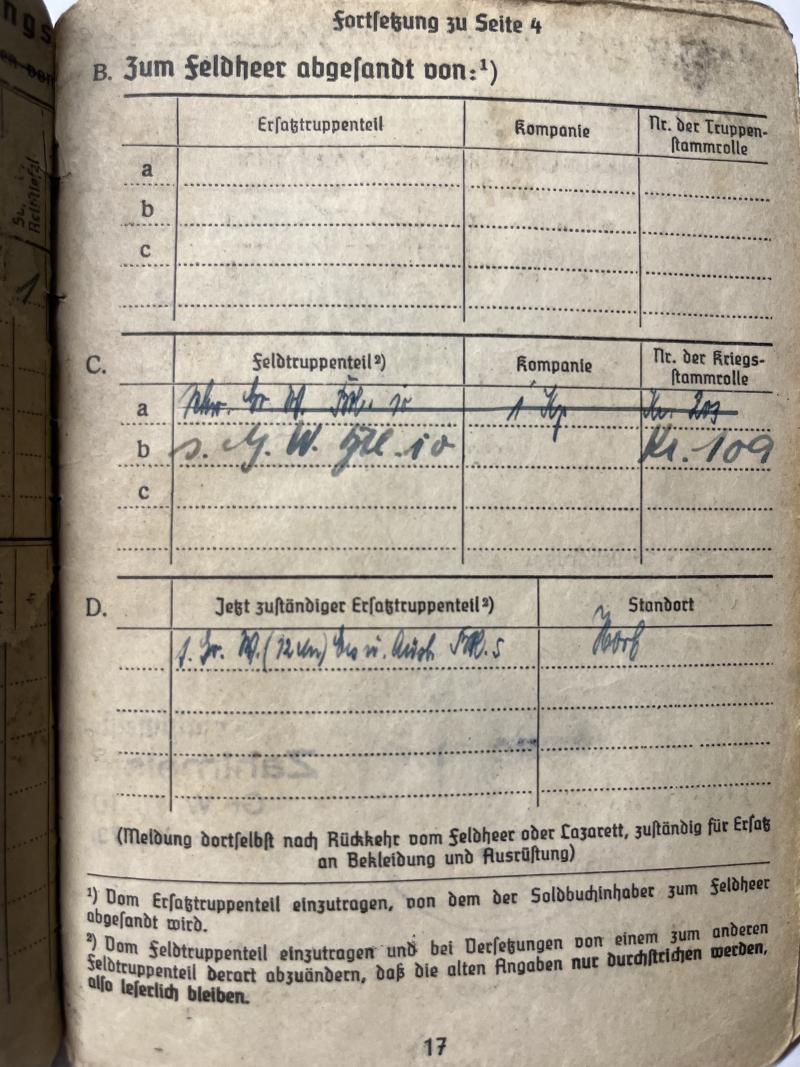 ngs
Fortsetzung zu Seite 4
B. Zum Feldheer abgesandt von:¹)
Ersatztruppenteil Kompanie Nr. der Truppen-
stammrolle
a
b
c
C. Feldtruppenteil²) Kompanie Nr. der Kriegs-
stammrolle
a W. 10 1 Kp. 203
b s. W. 10 Kr. 109
c
D. Jetzt zuständiger Ersatztruppenteil²) Standort
Gr. W. (12 cm) u. Ausb. 5 Horb
(Meldung dortselbst nach Rückkehr vom Feldheer oder Lazarett, zuständig für Ersatz
an Bekleidung und Ausrüstung)
¹) Vom Ersatztruppenteil einzutragen, von dem der Soldbuchinhaber zum Feldheer
abgesandt wird.
²) Vom Feldtruppenteil einzutragen und bei Versetzungen von einem zum anderen
Feldtruppenteil derart abzuändern, daß die alten Angaben nur durchstrichen werden,
also leserlich bleiben.
17